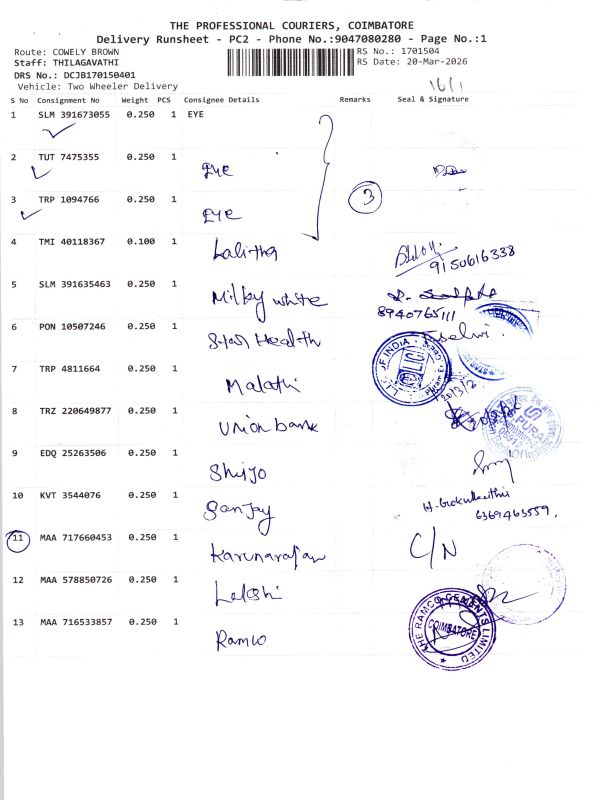 THE PROFESSIONAL COURIERS, COIMBATORE
Delivery Runsheet - PC2 - Phone No.:9047080280 - Page No.:1
Route: COWELY BROWN
RS No.: 1701504
Staff: THILAGAVATHI
RS Date: 20-Mar-2026
DRS No.: DCJB170150401
Vehicle: Two Wheeler Delivery
16/1
S No Consignment No Weight PCS Consignee Details Remarks Seal & Signature
1 SLM 391673055 0.250 1 EYE
2 TUT 7475355 0.250 1 EYE
3 TRP 1094766 0.250 1 EYE
3
4 TMI 40118367 0.100 1 Lalitha
9150616338
5 SLM 391635463 0.250 1 Milky white
8940765111
6 PON 10507246 0.250 1 Star Health
Tselvi
7 TRP 4811664 0.250 1 Malathi
L.I.C OF INDIA
LIC
8 TRZ 220649877 0.250 1 Union bank
9 EDQ 25263506 0.250 1 Shijo
10 KVT 3544076 0.250 1 Sanjay
6369463559
11 MAA 717660453 0.250 1 Karunarajan C/N
12 MAA 578850726 0.250 1
13 MAA 716533857 0.250 1 Ramco
THE RAMCO CEMENTS LIMITED
COIMBATORE